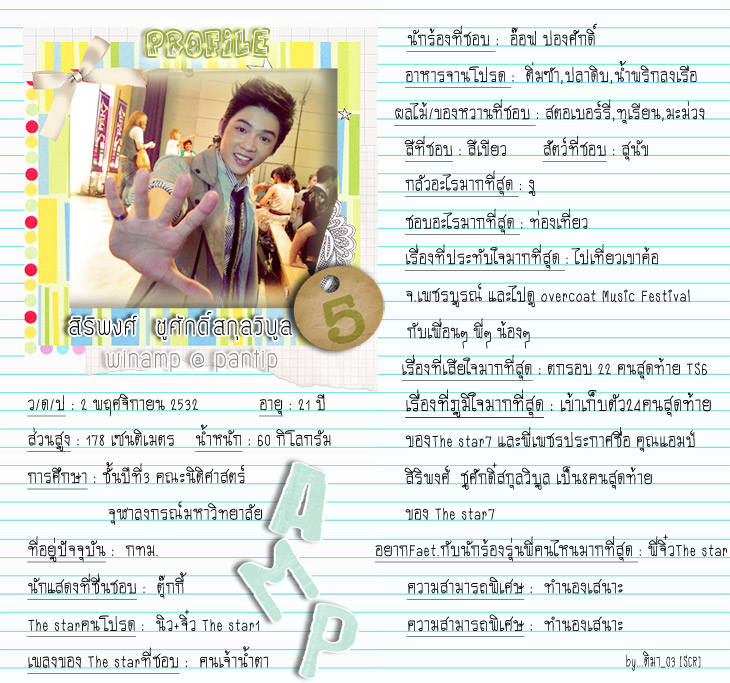 PROFILE
5
สิริพงศ์ ชูศักดิ์สกุลวิบูล
winamp @ pantip
ว/ด/ป : 2 พฤศจิกายน 2532 อายุ : 21 ปี
ส่วนสูง : 178 เซนติเมตร น้ำหนัก : 60 กิโลกรัม
การศึกษา : ชั้นปีที่3 คณะนิติศาสตร์
จุฬาลงกรณ์มหาวิทยาลัย
ที่อยู่ปัจจุบัน : กทม.
นักแสดงที่ชื่นชอบ : ตุ๊กกี้
The starคนโปรด : นิว+จิ๋ว The star1
เพลงของ The starที่ชอบ : คนเจ้าน้ำตา
AMP
นักร้องที่ชอบ : อ๊อฟ ปองศักดิ์
อาหารจานโปรด : ติ่มซำ,ปลาดิบ,น้ำพริกลงเรือ
ผลไม้/ของหวานที่ชอบ : สตอเบอร์รี่,ทุเรียน,มะม่วง
สีที่ชอบ : สีเขียว สัตว์ที่ชอบ : สุนัข
กลัวอะไรมากที่สุด : งู
ชอบอะไรมากที่สุด : ท่องเที่ยว
เรื่องที่ประทับใจมากที่สุด : ไปเที่ยวเขาค้อ
จ.เพชรบูรณ์ และไปดู overcoat Music Festival
กับเพื่อนๆ พี่ๆ น้องๆ
เรื่องที่เสียใจมากที่สุด : ตกรอบ 22 คนสุดท้าย TS6
เรื่องที่ภูมิใจมากที่สุด : เข้าเก็บตัว24คนสุดท้าย
ของThe star7 และพี่เพชรประกาศชื่อ คุณแอมป์
สิริพงศ์ ชูศักดิ์สกุลวิบูล เป็น8คนสุดท้าย
ของ The star7
อยากFaet.กับนักร้องรุ่นพี่คนไหนมากที่สุด : พี่จิ๋วThe star
ความสามารถพิเศษ : ทำนองเสนาะ
ความสามารถพิเศษ : ทำนองเสนาะ
by...ติมา_03 [SCR]